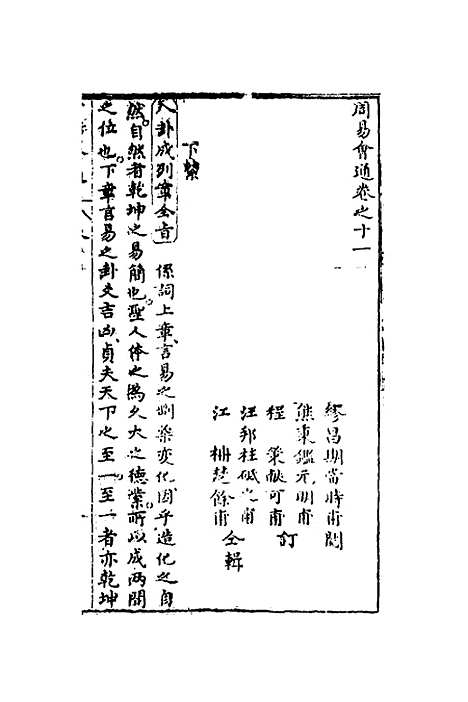 周易會通卷之十一
繆昌期當時甫閱
熊秉鑑元明甫
訂
程 策獻可甫
汪邦柱砥之甫
仝輯
江 柟楚餘甫
下繫
八卦成列章全旨 係詞上章言易之剛柔變化因乎造化之自
然自然者乾坤之易簡也聖人体之爲久大之德業所以成兩間
之位也下章言易之卦爻吉凶貞夫天下之至一至一者亦乾坤